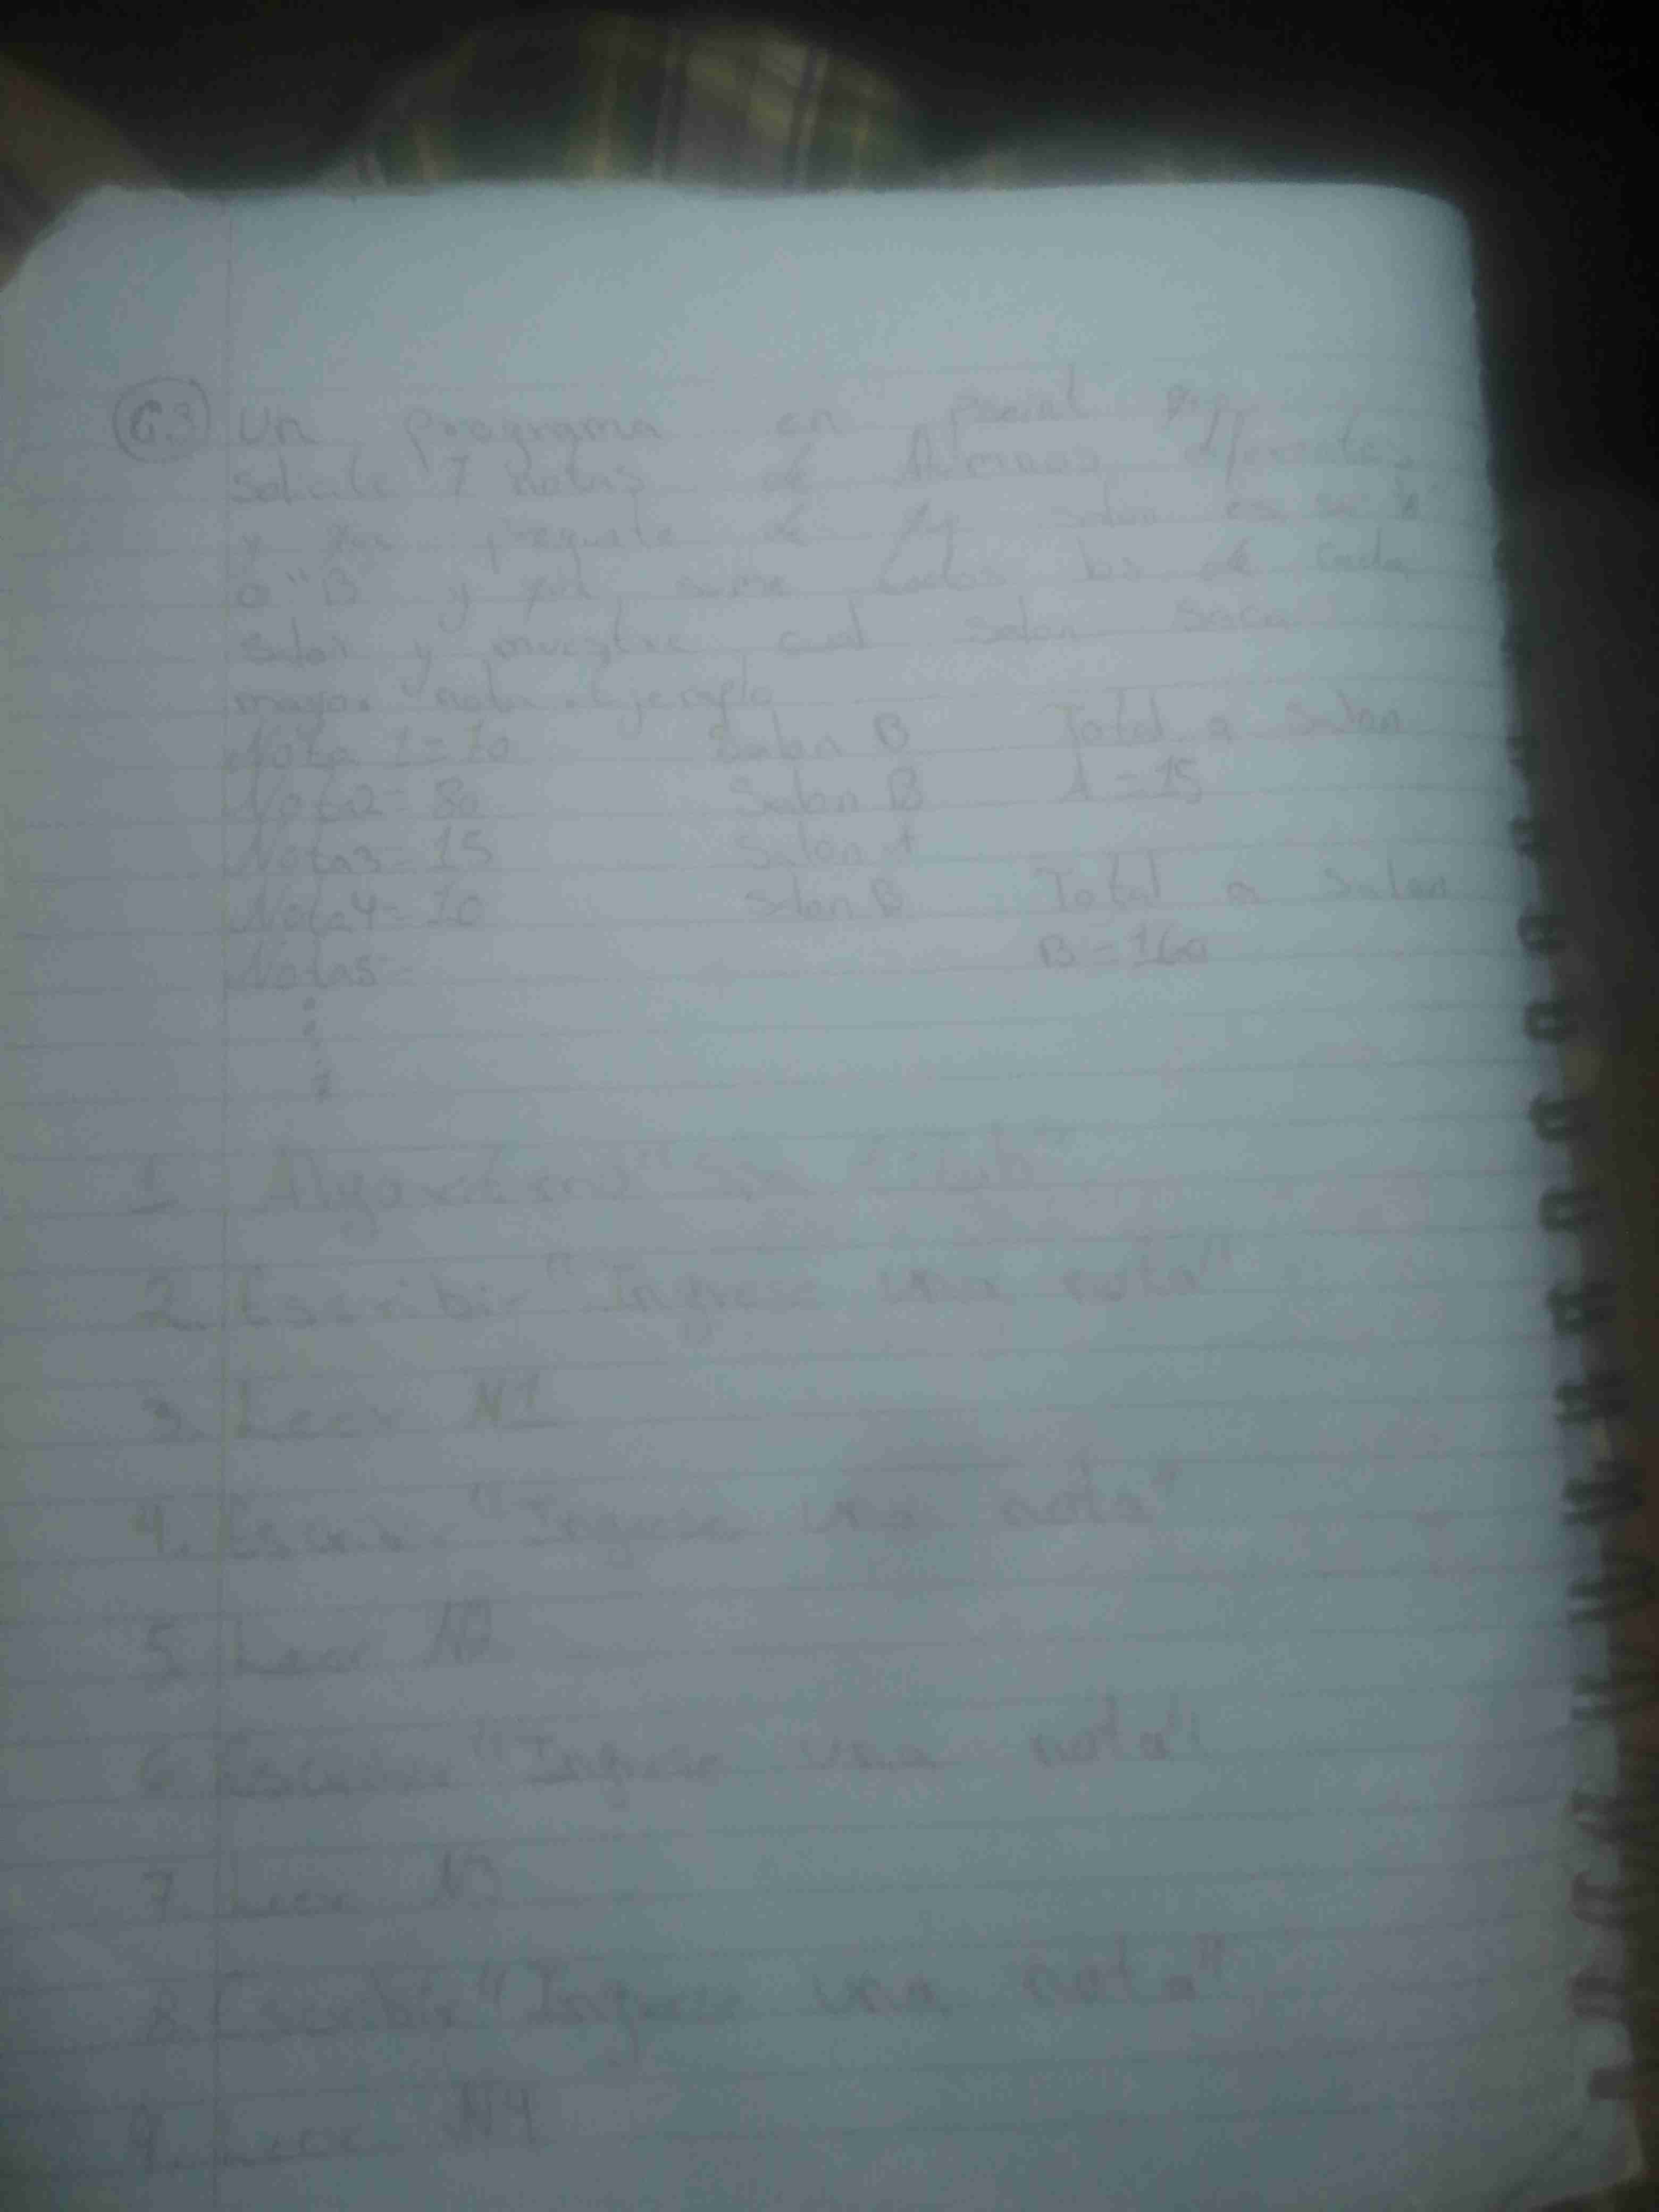 63 Un programa en pseint que
solicite 7 notas de Alumnos diferentes
y que pregunte de que salon es si "A"
o "B" y que sume todas las de cada
salon y muestre cual salon saca
mayor nota. Ejemplo
Nota 1 = 70 Salon B Total a Salon
Nota2 = 80 Salon B A = 15
Nota3 = 15 Salon A
Nota4 = 10 Salon B Total a Salon
Nota5 = B = 160
1 Algoritmo "Sin
2. Escribir "Ingrese una nota"
3. Leer N1
4. Escribir "Ingrese una nota"
5. Leer N2
6. Escribir "Ingrese una nota"
7. Leer N3
8. Escribir "Ingrese una nota"
9. Leer N4